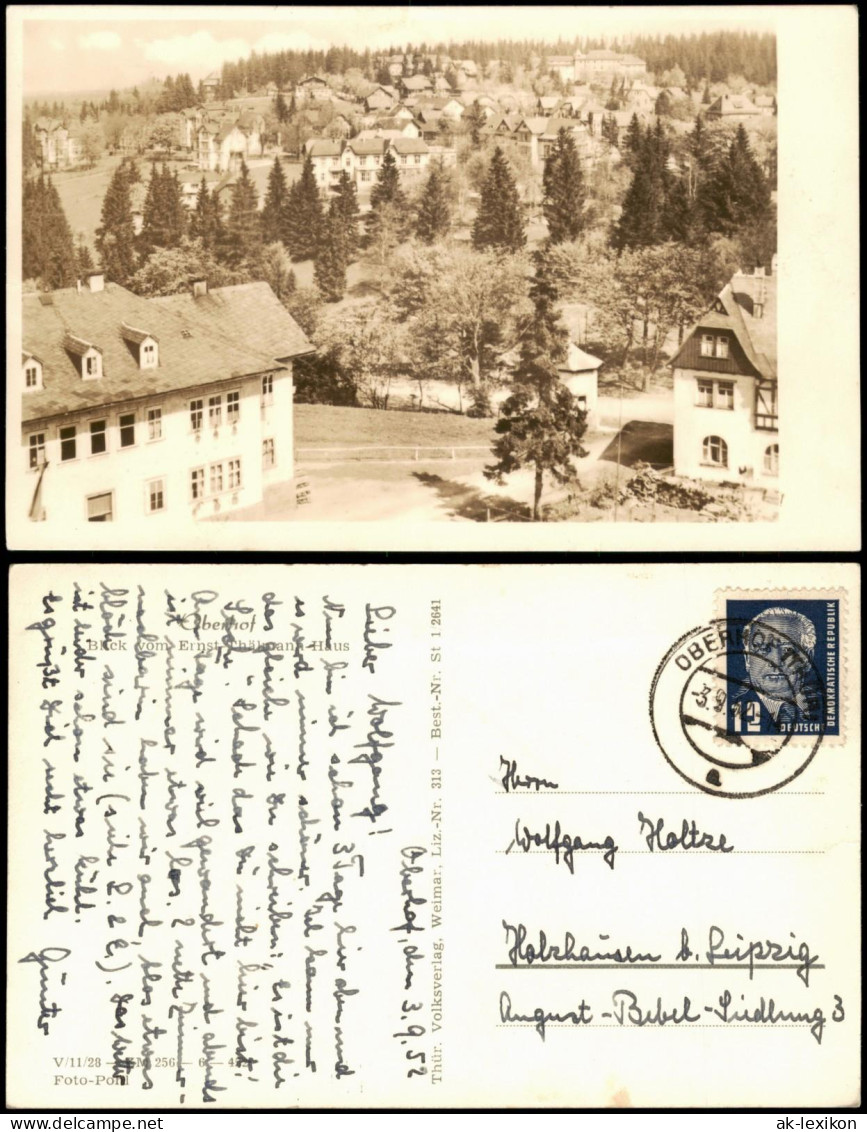 Oberhof
Blick vom Ernst-Thälmann-Haus
Oberhof, den 3.9.52
Lieber Wolfgang!
Nun bin ich schon 3 Tage hier oben und
es wird immer schöner. Ich kann nur
das gleiche wie Du schreiben: „Es ist die
Schade das Du nicht hier bist.
Am Tage wird viel gewandert und abends
ist immer etwas los. 2 nette Zimmer-
nachbarn haben wir auch, blos etwas
blöde sind sie (siehe L. & E.). Das Wetter
ist leider schon etwas kühl.
Es grüßt Dich recht herzlich
Günter
V/11/28
256 — 6
Foto-Pohl
Thür. Volksverlag, Weimar, Liz.-Nr. 313 — Best.-Nr. St 1/2641
OBERHOF
3.9.52
a
12
DEUTSCHE
DEMOKRATISCHE REPUBLIK
Herrn
Wolfgang Holtze
Holzhausen b. Leipzig
August-Bebel-Siedlung 3
www.ansichtskarten-lexikon.de
ak-lexikon